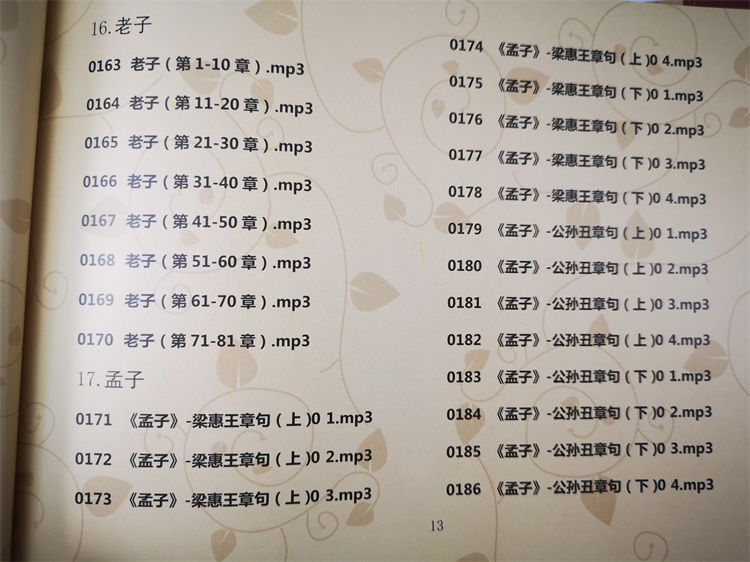 16.老子
0163 老子（第 1-10 章）.mp3
0164 老子（第 11-20 章）.mp3
0165 老子（第 21-30 章）.mp3
0166 老子（第 31-40 章）.mp3
0167 老子（第 41-50 章）.mp3
0168 老子（第 51-60 章）.mp3
0169 老子（第 61-70 章）.mp3
0170 老子（第 71-81 章）.mp3
17.孟子
0171 《孟子》-梁惠王章句（上）0 1.mp3
0172 《孟子》-梁惠王章句（上）0 2.mp3
0173 《孟子》-梁惠王章句（上）0 3.mp3
0174 《孟子》-梁惠王章句（上）0 4.mp3
0175 《孟子》-梁惠王章句（下）0 1.mp3
0176 《孟子》-梁惠王章句（下）0 2.mp3
0177 《孟子》-梁惠王章句（下）0 3.mp3
0178 《孟子》-梁惠王章句（下）0 4.mp3
0179 《孟子》-公孙丑章句（上）0 1.mp3
0180 《孟子》-公孙丑章句（上）0 2.mp3
0181 《孟子》-公孙丑章句（上）0 3.mp3
0182 《孟子》-公孙丑章句（上）0 4.mp3
0183 《孟子》-公孙丑章句（下）0 1.mp3
0184 《孟子》-公孙丑章句（下）0 2.mp3
0185 《孟子》-公孙丑章句（下）0 3.mp3
0186 《孟子》-公孙丑章句（下）0 4.mp3
13